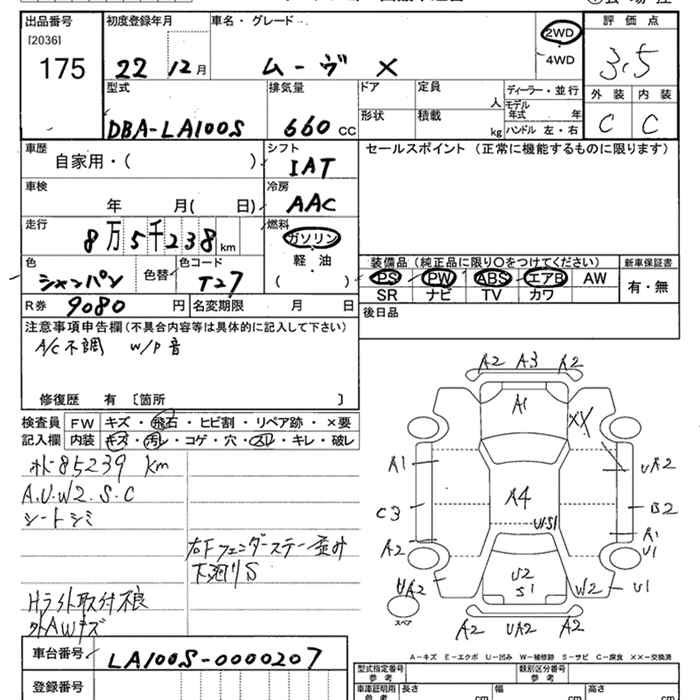 出品番号 初度登録年月 車名・グレード 2WD 評価点
[2036] 4WD
175 22 12月 ムーヴ X 3.5
型式 排気量 ドア 定員 人 ディーラー・並行 外装 内装
モデル年式 年
DBA-LA100S 660cc 形状 積載 kg ハンドル 左・右 C C
車歴 シフト セールスポイント(正常に機能するものに限ります)
自家用・( ) IAT
車検 冷房
年 月( 日) AAC
走行 燃料
8万5千238km ガソリン
軽・油
( )
色 色替 色コード 装備品(純正品に限り〇をつけてください) 新車保証書
シャンパン T27 PS PW ABS エアB AW 有・無
SR ナビ TV カワ
R券 9080円 名変期限 月 日 後日品
注意事項申告欄(不具合内容等は具体的に記入して下さい)
A/C不調 W/P音
修復歴 有 〔箇所 〕
検査員 FW キズ・飛石・ヒビ割・リペア跡・×要
記入欄 内装 キズ・汚レ・コゲ・穴・スレ・キレ・破レ
85239 km
A.U.W2.S.C
シートシミ
右Fフェンダーステー歪み
下廻りS
Hライト取付不良
外AWキズ
A2 A3 A2
A1 XX
A1 UA2
A4
C3 B2
US1 A1
A2 U1
U2
UA2 S1 W2 U1
スペア
A2 UA2 A2
A-キズ E-エクボ U-凹み W-補修跡 S-サビ C-腐食 XX-交換済
車台番号 LA100S-0000207
型式指定番号 参考 類別区分番号 参考
登録番号 車庫証明用 参考 長さ cm 幅 cm 高さ cm